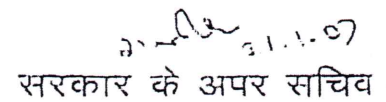 31.1.07
सरकार के अपर सचिव